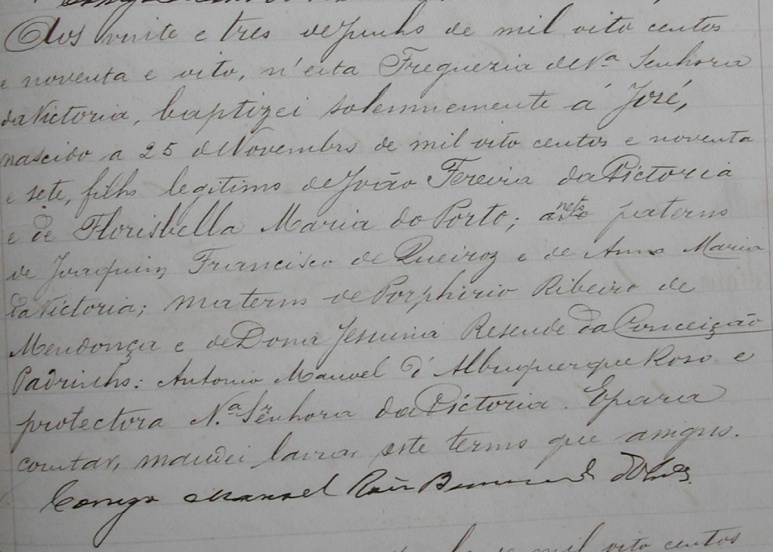 Aos vinte e tres de Junho de mil oito centos
e noventa e oito, n'esta Freguezia de Nª Senhora
da Victoria, baptizei solemnemente á José,
nascido a 25 de Novembro de mil oito centos e noventa
e sete, filho legitimo de João Ferreira da Victoria
e de Florisbella Maria do Porto; neto paterno
de Joaquim Francisco de Queiroz e de Anna Maria
da Victoria; materno de Porphirio Ribeiro de
Mendonça e de Dona Jesuina Resende da Conceição
Padrinhos: Antonio Manoel d'Albuquerque Roso e
protectora N.ª Senhora da Victoria. E para
constar, mandei lavrar este termo que assigno.
Conego Manoel
de mil oito centos